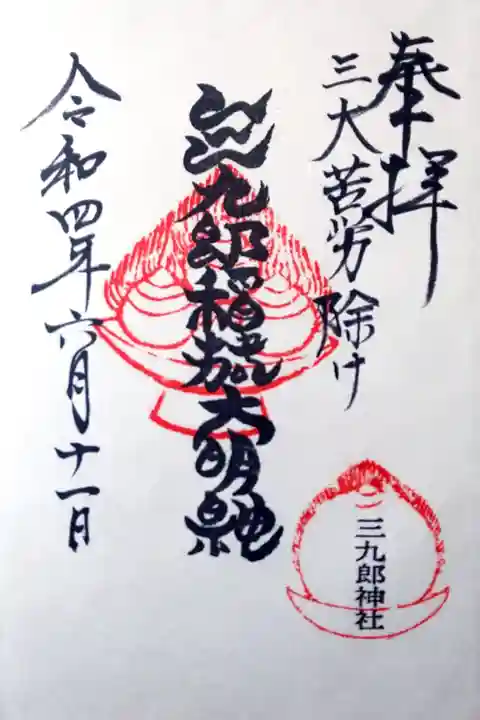 奉拝
三大苦労除け
三九郎稲荷大明神
令和四年六月十一日
三九郎神社